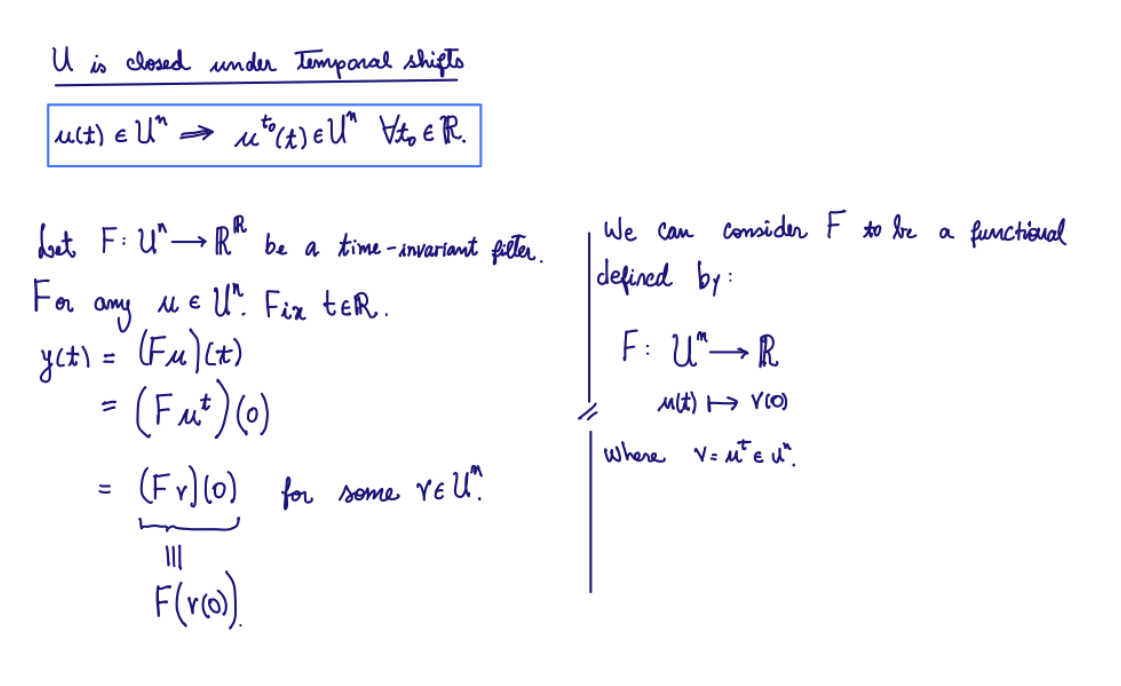 U is closed under Temporal shifts
u(t) ∈ Uⁿ ⇒ u^{t₀}(t) ∈ Uⁿ ∀t₀ ∈ ℝ.
Let F: Uⁿ → ℝ^ℝ be a time-invariant filter.
For any u ∈ Uⁿ. Fix t∈ℝ.
y(t) = (Fu)(t)
= (Fu^t)(0)
= (Fv)(0) for some v ∈ Uⁿ.
|||
F(v(0)).
We can consider F to be a functional
defined by:
F: Uⁿ → ℝ
u(t) ↦ v(0)
where v = u^t ∈ Uⁿ.